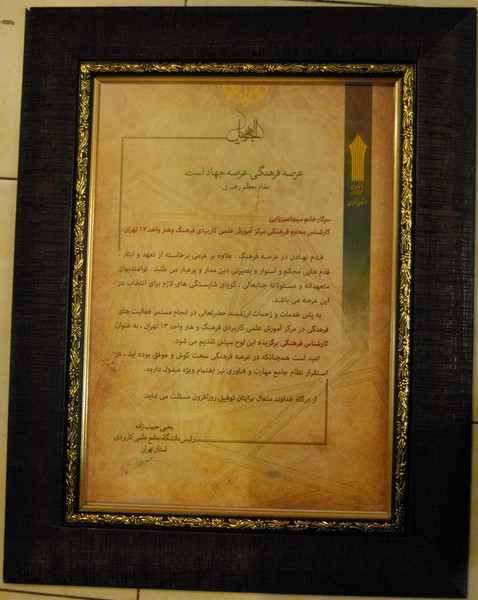 عرصه فرهنگی، عرصه جهاد است
مقام معظم رهبری
سرکار خانم سیما میرزایی
کارشناس محترم فرهنگی مرکز آموزش علمی کاربردی فرهنگ وهنر واحد ۱۳ تهران
قدم نهادن در عرصه فرهنگ ، علاوه بر عزمی برخاسته از تعهد و ایثار ،
قدم هایی محکم و استوار و بصیرتی دین مدار و پرعیار می طلبد. توانمندیهای
متعهدانه و مسئولانه جنابعالی ، گویای شایستگی های لازم برای انتخاب در
این عرصه می باشد.
به پاس خدمات و زحمات ارزشمند حضرتعالی در انجام مستمر فعالیت های
فرهنگی در مرکز آموزش علمی کاربردی فرهنگ و هنر واحد ۱۳ تهران ، به عنوان
کارشناس فرهنگی برگزیده این لوح سپاس تقدیم می شود.
امید است همچنانکه در عرصه فرهنگی سخت کوش و موفق بوده اید ، در
استقرار نظام جامع مهارت و فناوری نیز اهتمام ویژه مبذول دارید.
از درگاه خداوند متعال برایتان توفیق روزافزون مسئلت می نماید.
یحیی حبیب زاده
رئیس دانشگاه جامع علمی کاربردی
استان تهران